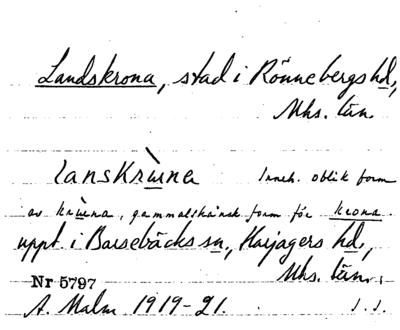 Landskrona, stad i Rönnebergs hd,
Mhs. län.
lanskrùna Inneh. oblik form
av krùuna, gammalskånsk form för krona
uppt. i Barsebäcks sn, Harjagers hd,
Mhs. län.
Nr 5797
A. Malm 1919-21.